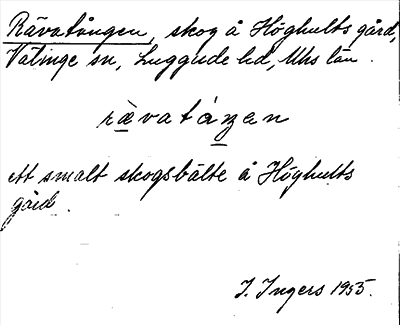 Rävatången, skog å Höghults gård,
Välinge sn, Luggude hd, Mhs län.
rävatáŋen
ett smalt skogsbälte å Höghults
gård.
I. Ingers 1955.